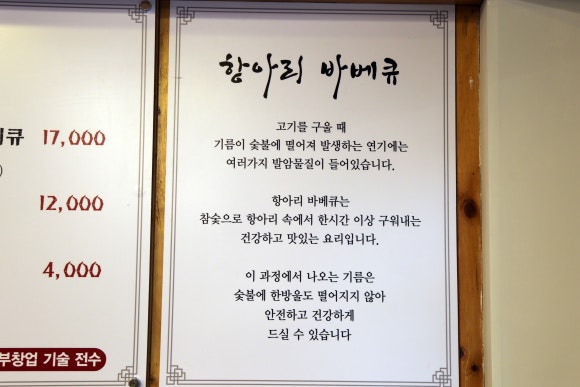 큐 17,000
)
12,000
4,000
부창업 기술 전수
항아리 바베큐
고기를 구울 때
기름이 숯불에 떨어져 발생하는 연기에는
여러가지 발암물질이 들어있습니다.
항아리 바베큐는
참숯으로 항아리 속에서 한시간 이상 구워내는
건강하고 맛있는 요리입니다.
이 과정에서 나오는 기름은
숯불에 한방울도 떨어지지 않아
안전하고 건강하게
드실 수 있습니다